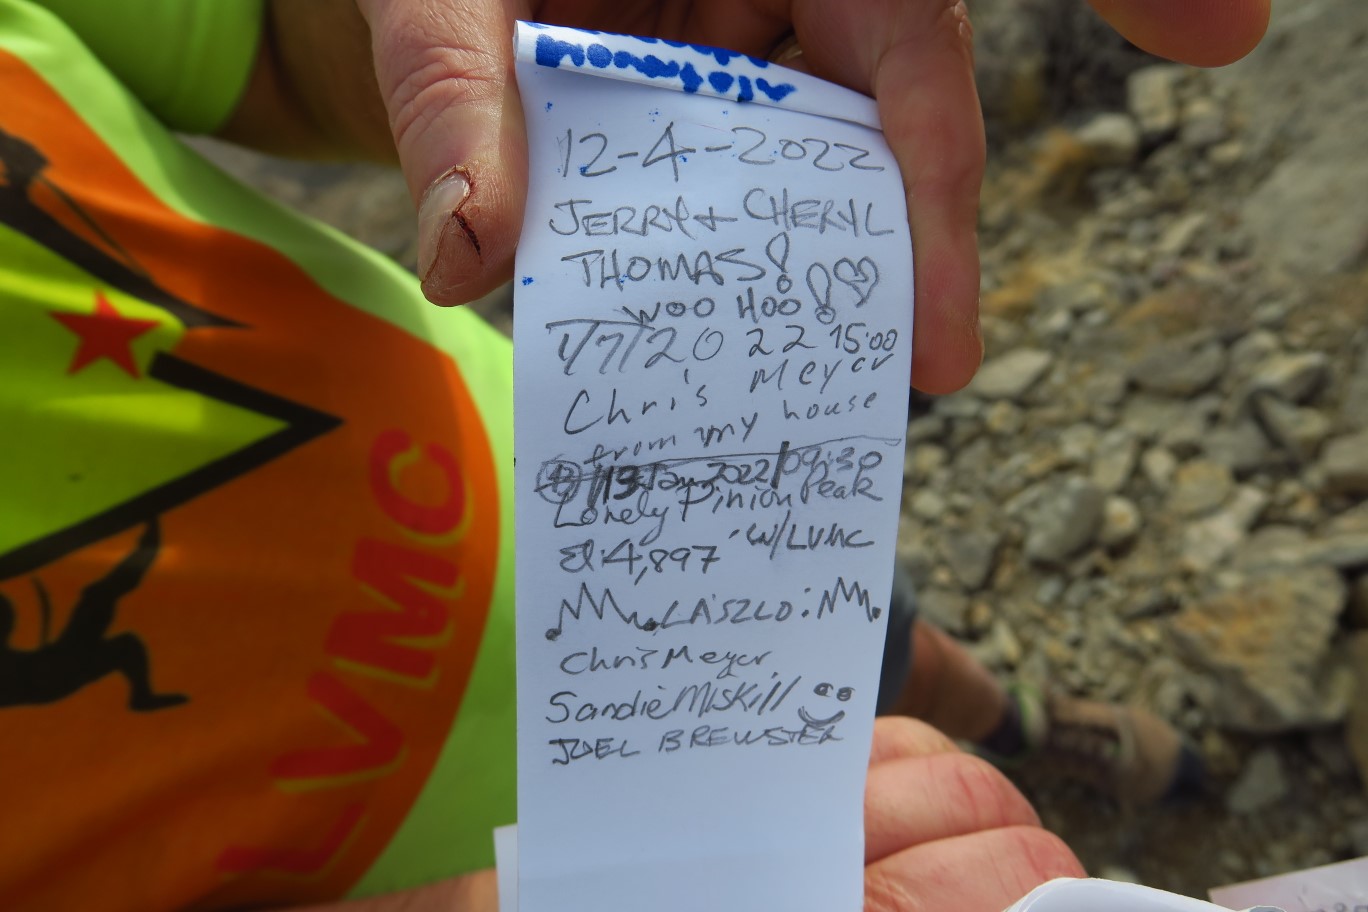 12-4-2022
JERRY + CHERYL
THOMAS!
WOO HOO! ♡
1/7/2022 15:00
Chris Meyer
from my house
13 Jan 2022/09:30
Lonely Pinion Peak
El. 4,897 w/LVMC
LÁSZLO
Chris Meyer
Sandie Miskill
JOEL BREWSTER
LVMC